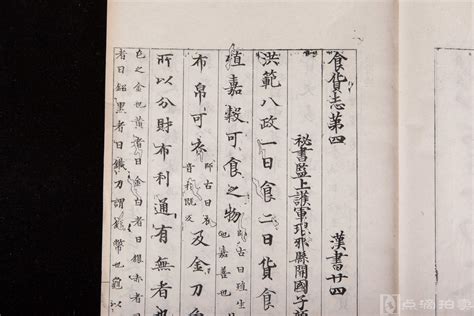 食貨志第四 漢書廿四
秘書監上護軍琅邪縣開國子顏
洪範八政一曰食二曰貨食
植嘉穀可食之物 師古曰殖生也嘉善也
布帛可衣 師古曰衣音於既反 及金刀
所以分財布利通有無者
色之金也黃者曰金白者曰銀赤者
者曰鉛黑者曰鐵刀謂錢幣也龜以
点滴拍卖